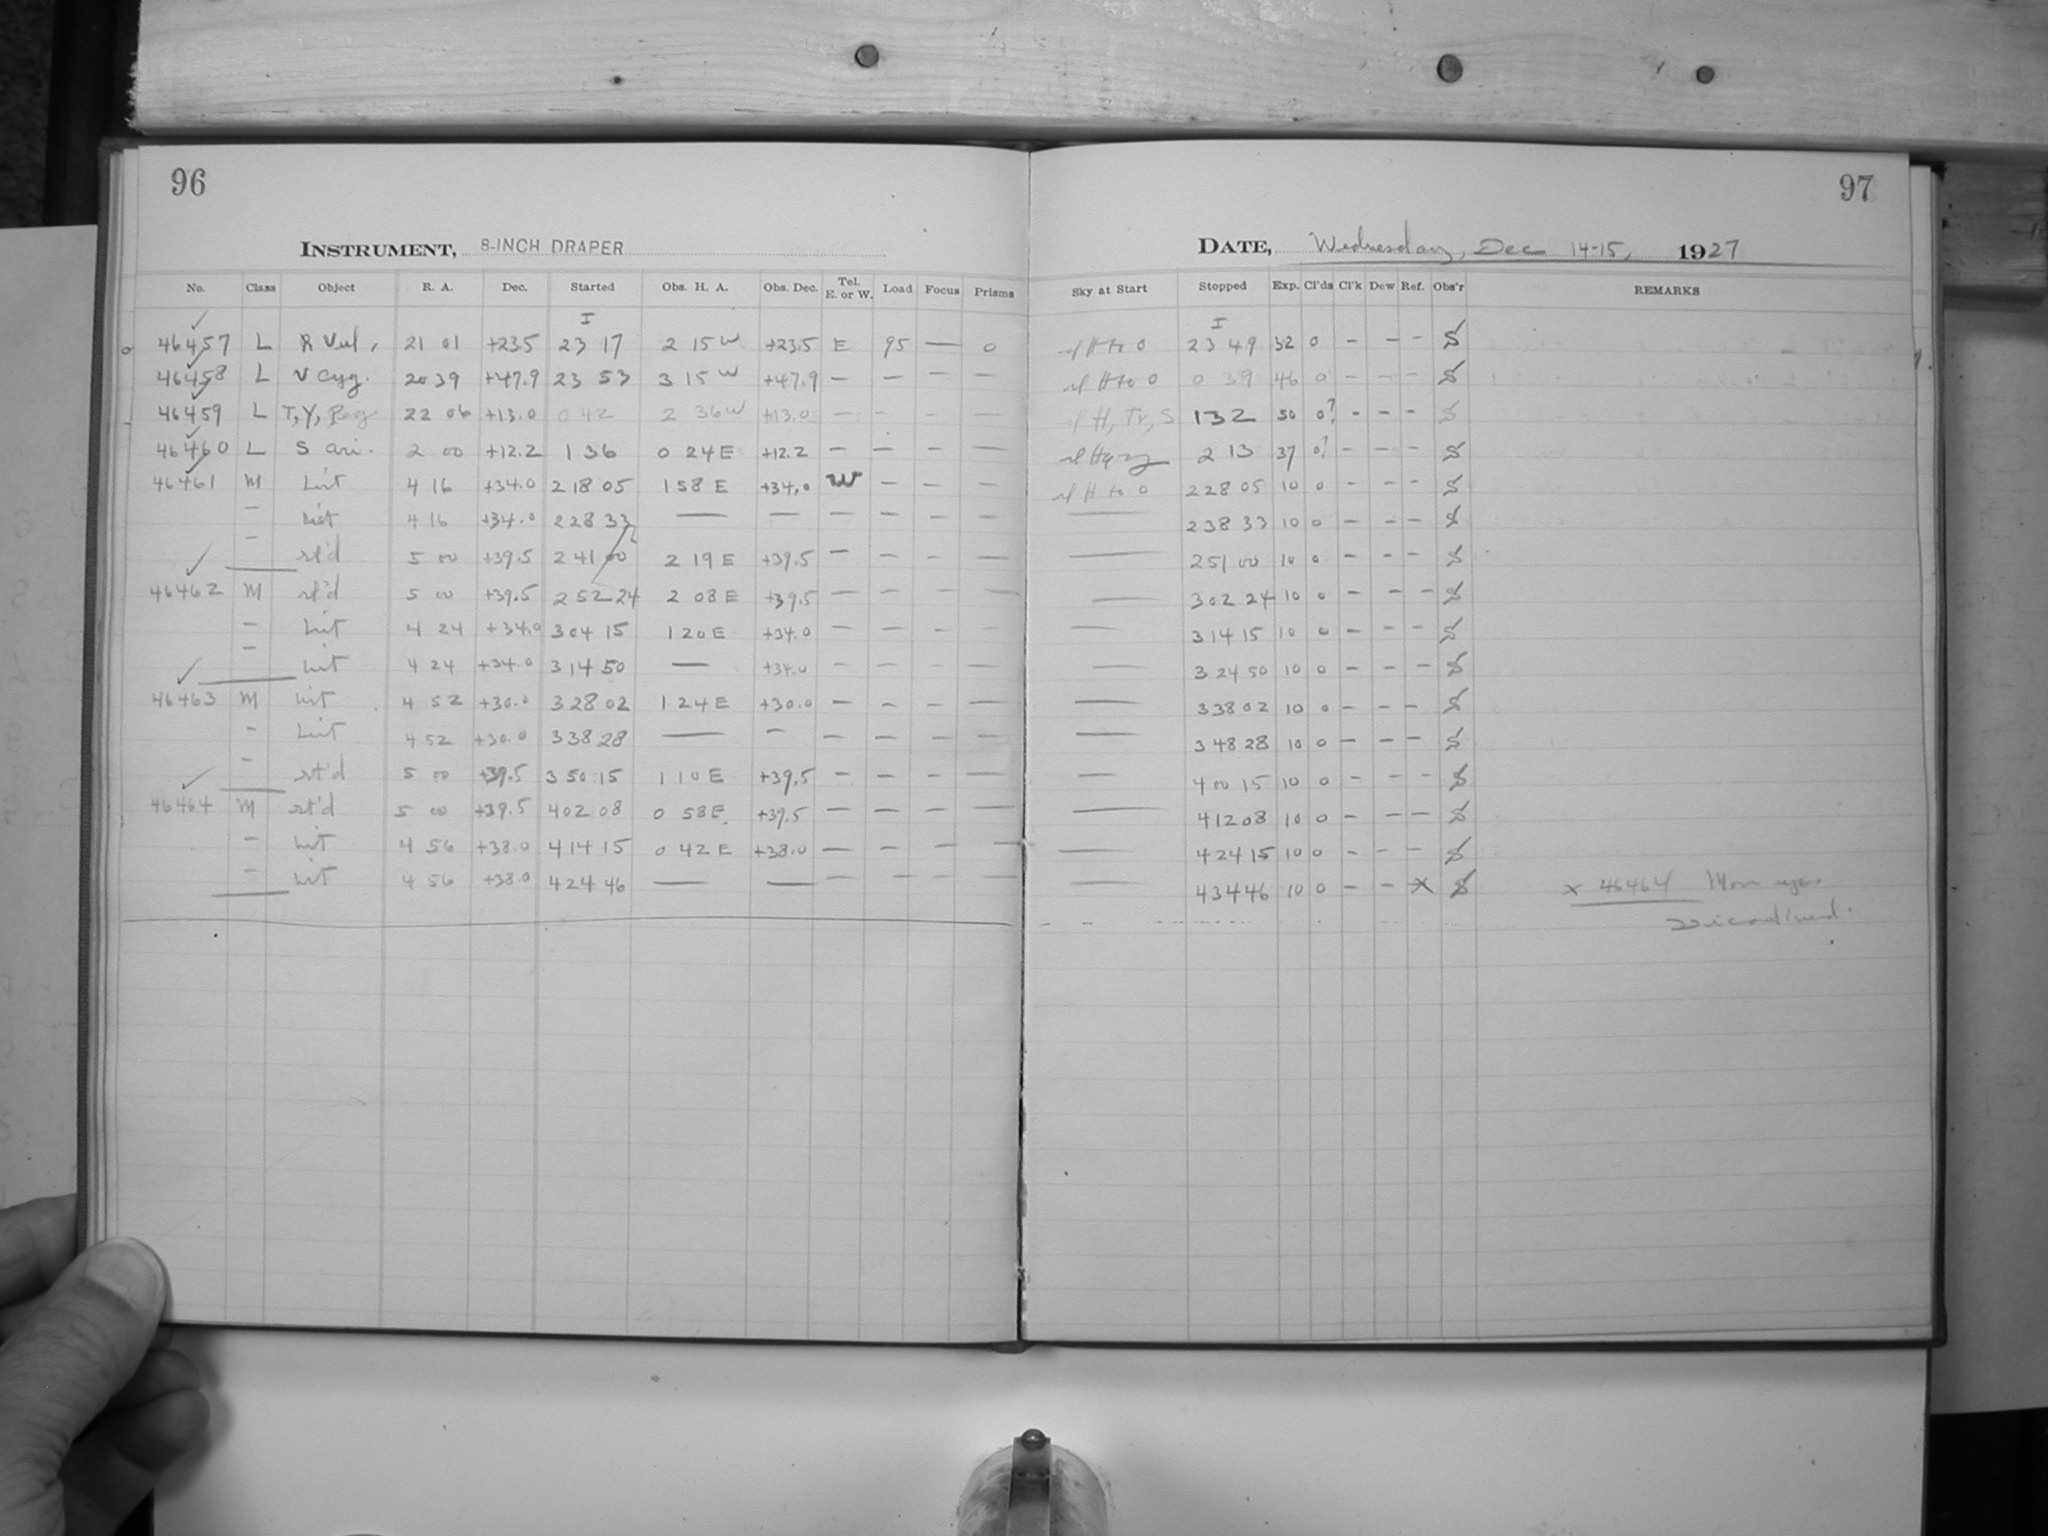 96
INSTRUMENT, 8-INCH DRAPER
No. Class Object R. A. Dec. Started Obs. H. A. Obs. Dec. Tel. E. or W. Load Focus Prisms
I
46457 L R Vul, 21 01 +23.5 23 17 2 15 W +23.5 E 95 — 0
46458 L V Cyg. 20 39 +47.9 23 53 3 15 W +47.9 — — — —
46459 L T, Y, Peg 22 06 +13.0 0 42 2 36 W +13.0 — — — —
46460 L S Ari. 2 00 +12.2 1 36 0 24 E +12.2 — — — —
46461 M 4 16 +34.0 2 18 05 1 58 E +34.0 W — — —
— 4 16 +34.0 2 28 33 — — — — — —
— st'd 5 00 +39.5 2 41 00 2 19 E +39.5 — — — —
46462 M st'd 5 00 +39.5 2 52 24 2 08 E +39.5 — — — —
— 4 24 +34.0 3 04 15 1 20 E +34.0 — — — —
— 4 24 +34.0 3 14 50 — +34.0 — — — —
46463 M 4 52 +30.0 3 28 02 1 24 E +30.0 — — — —
— 4 52 +30.0 3 38 28 — — — — — —
— st'd 5 00 +39.5 3 50 15 1 10 E +39.5 — — — —
46464 M st'd 5 00 +39.5 4 02 08 0 58 E +39.5 — — — —
— 4 56 +38.0 4 14 15 0 42 E +38.0 — — — —
— 4 56 +38.0 4 24 46 — — — — — —
97
DATE, Wednesday, Dec 14-15, 1927
Sky at Start Stopped Exp. Cl'ds Cl'k Dew Ref. Obs'r REMARKS
I
H to 0 23 49 32 0 — — — S
H to 0 0 39 46 0 — — — S
H, Tr, S 1 32 50 0? — — — S
2 13 37 0? — — — S
H to 0 2 28 05 10 0 — — — S
— 2 38 33 10 0 — — — S
— 2 51 00 10 0 — — — S
— 3 02 24 10 0 — — — S
— 3 14 15 10 0 — — — S
— 3 24 50 10 0 — — — S
— 3 38 02 10 0 — — — S
— 3 48 28 10 0 — — — S
— 4 00 15 10 0 — — — S
— 4 12 08 10 0 — — — S
— 4 24 15 10 0 — — — S
— 4 34 46 10 0 — — X S x 46464